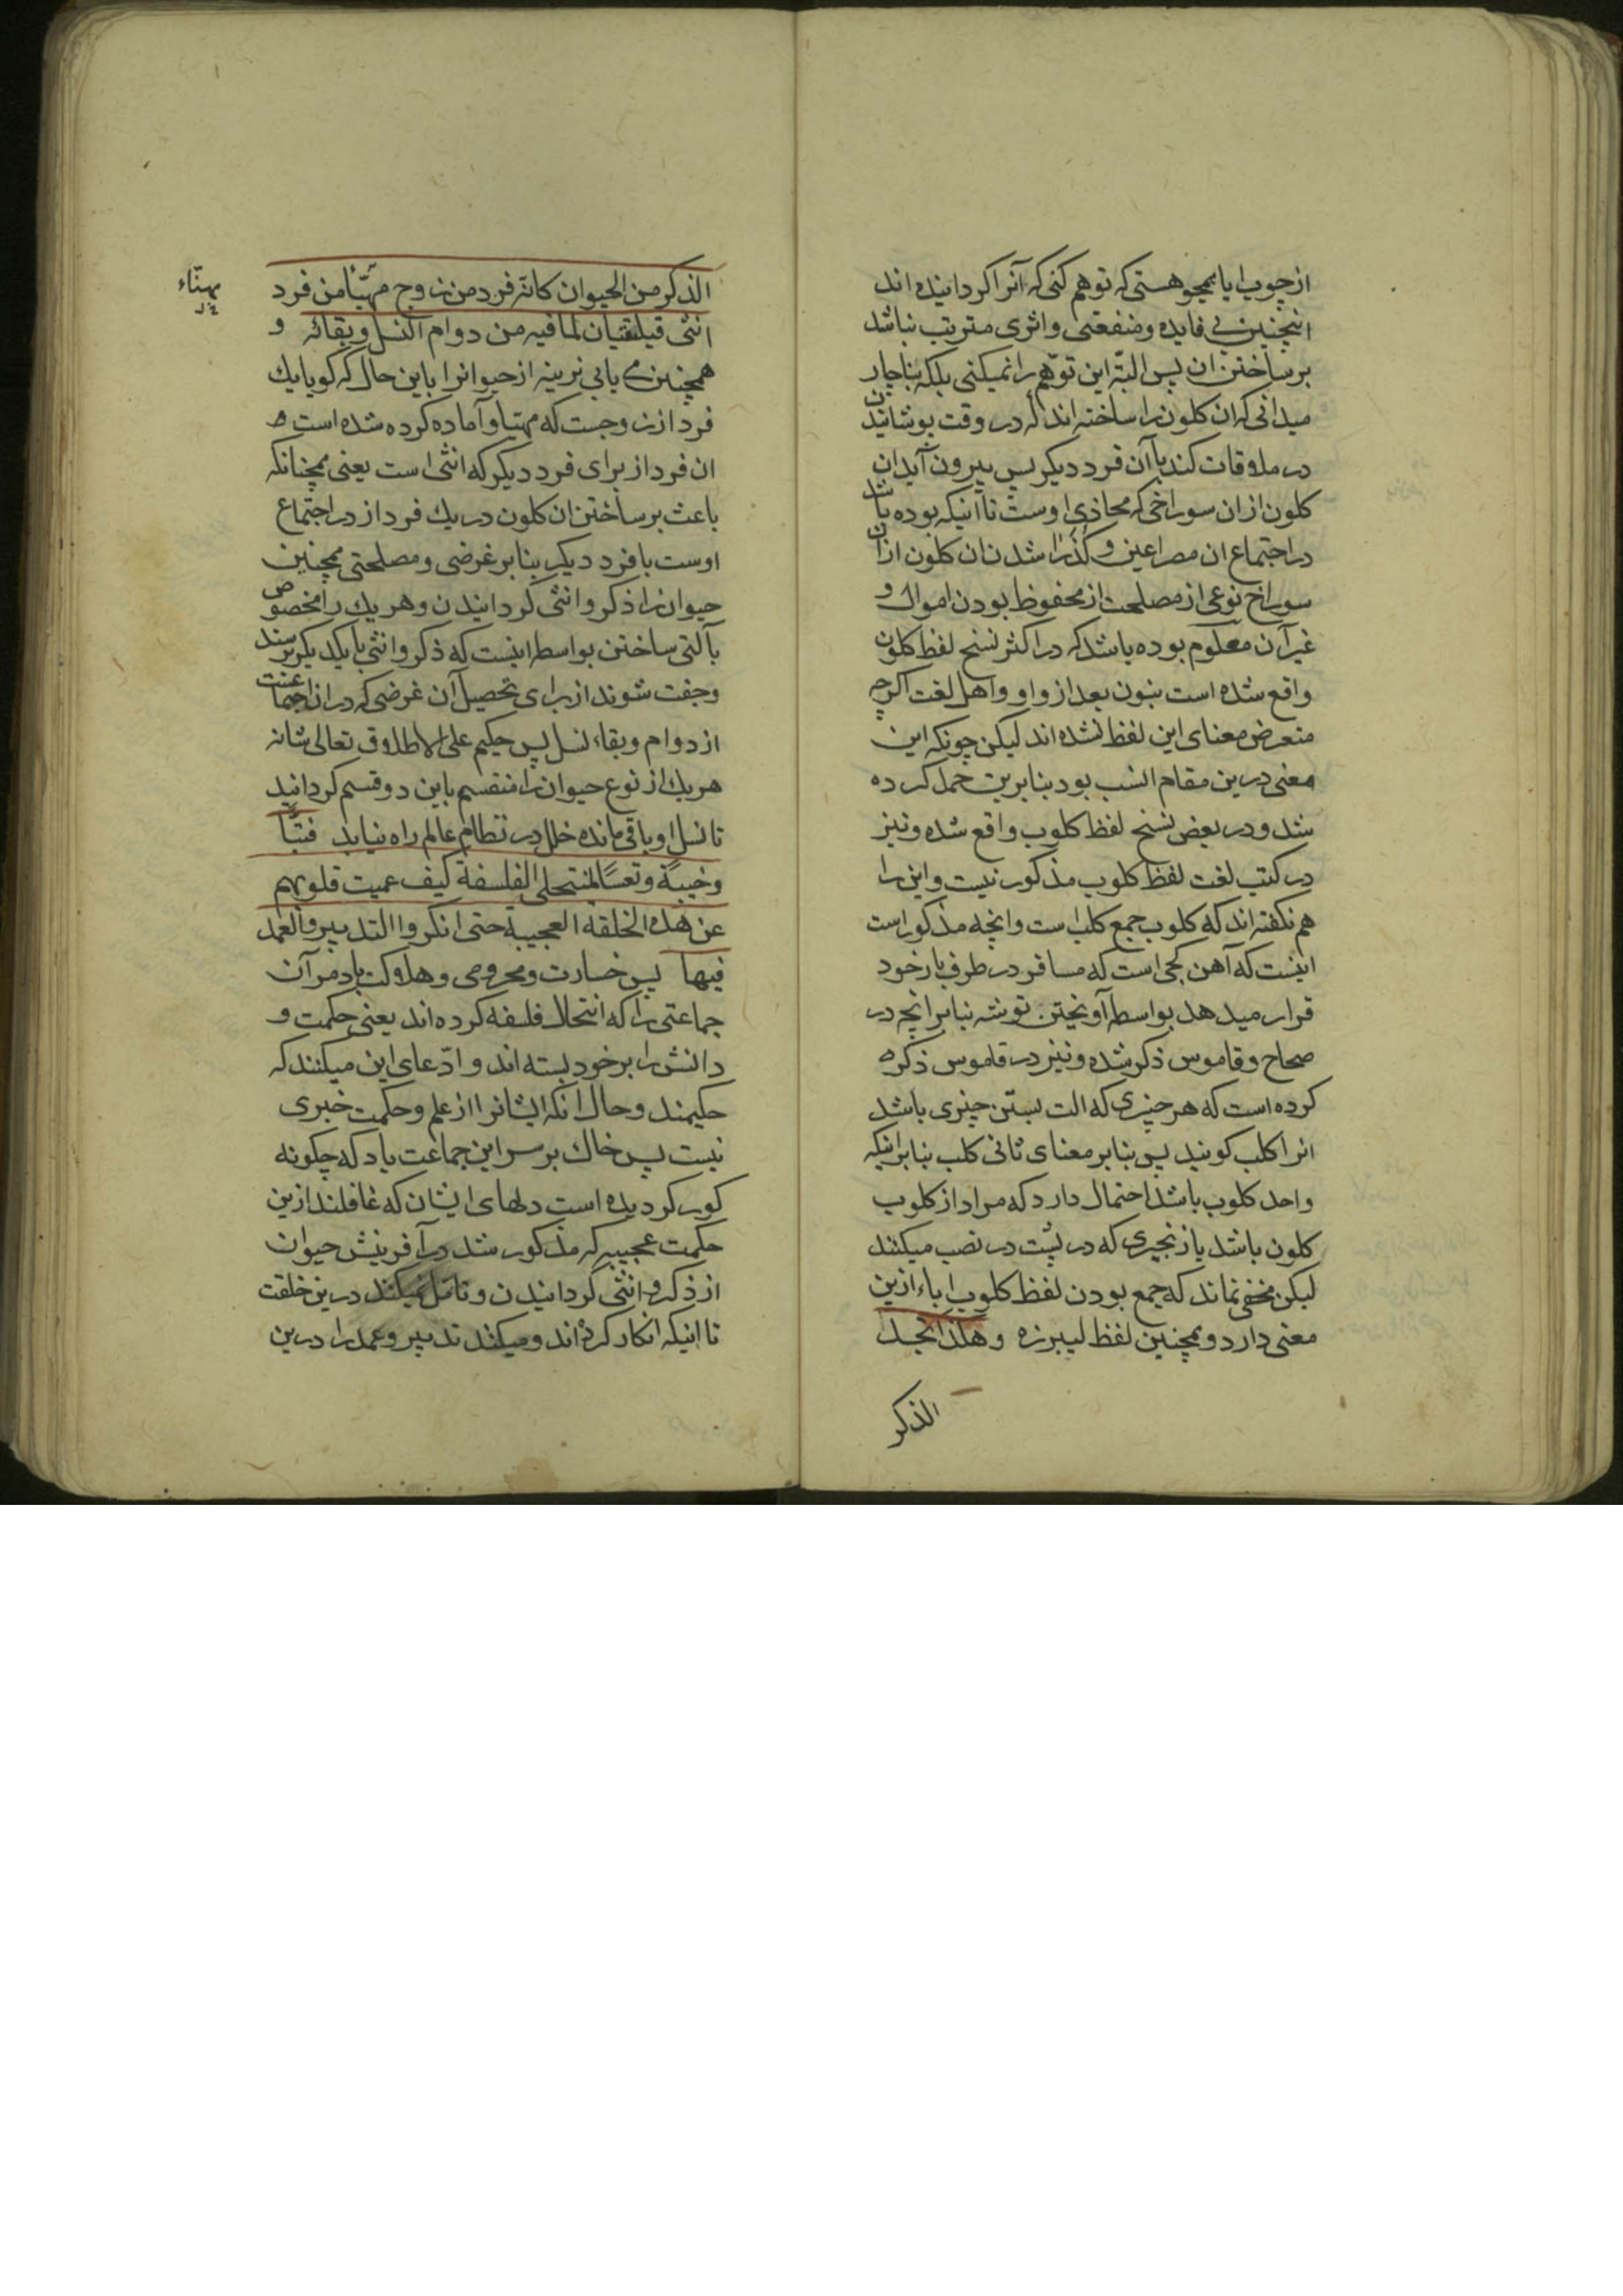 از چوب ایا همچو هستی که توهم کنی که آنرا کردانیده اند
اینچنین بی فایده و منفعتی و اثری مترتب نباشد
بر ساختن ان پس البتّه این توهّم را نمیکنی بلکه بناچار
میدانی که ان کلون را ساخته اند که در وقت پوشانیدن
در ملاوقات کند با آن فرد دیکر پس بیرون آید ان
کلون از ان سوراخی که محاذی اوست تا آنیکه بوده باشد
در اجتماع ان مصراعین و کذرا شدن ان کلون از ان
سوراخ نوعی از مصلحت از محفوظ بودن اموال و
غیر آن معلوم بوده باشد که در اکثر نسخ لفظ کلون
واقع شده است بنون بعد از واو و اهل لغت اکرچه
متعرض معنای این لفظ نشده اند لیکن چونکه این
معنی درین مقام انسب بود بنابرین حمل کرده
شد و در بعض نسخ لفظ کلوب واقع شده و نیز
در کتب لغت لفظ کلوب مذکور نیست و این را
هم نکفته اند که کلوب جمع کلب است و انچه مذکور است
اینست که آهن کجی است که مسافر در طرف بار خود
قرار میدهد بواسطه آویختن توشه بنابر انچه در
صحاح و قاموس ذکر شده و نیز در قاموس ذکره
کرده است که هر چیزی که الت بستن چیزی باشد
انرا کلب کویند پس بنابر معنای ثانی کلب بنابر انیکه
واحد کلوب باشد احتمال دارد که مراد از کلوب
کلون باشد یا زنجیری که در پشت در نصب میکنند
لیکن مخفی نماند که جمع بودن لفظ کلوب اباء ازین
معنی دارد و همچنین لفظ لیبرزه وهکذا تجد
الذکر
الذکر من الحیوان کانّه فرد من زوج مهیّأ من فرد
انثی فیلتقیان لما فیه من دوام النسل و بقائه و
همچنین می یابی نرینه از حیوانرا باین حال که کویا یك
فرد از زوجست که مهیّا و آماده کرده شده است
ان فرد از برای فرد دیکر که انثی است یعنی همچنانکه
باعث بر ساختن ان کلون در یك فرد از در اجتماع
اوست با فرد دیکر بنابر غرضی و مصلحتی همچنین
حیوان را ذکر و انثی کردانیدن و هر یك را مخصوص
بآلتی ساختن بواسطه اینست که ذکر و انثی با یکدیکر برسند
و جفت شوند از برای تحصیل آن غرضی که در ان اجتماعست
از دوام و بقاء نسل پس حکیم علی الاطلاق تعالی شانه
هر یك از نوع حیوان را منقسم باین دو قسم کردانید
تا نسل او باقی مانده خلل در نظام عالم راه نیابد فتبّاً
و خیبةً و تعسًا لمنتحلی الفلسفة کیف عمیت قلوبهم
عن هذه الخلقه العجیبة حتی انکروا التدبیر و العمد
فیها پس خسارت و محرومی و هلاکت باد مر آن
جماعتی را که انتحال فلسفه کرده اند یعنی حکمت و
دانش را بر خود بسته اند و ادّعای این میکنند که
حکیمند و حال انکه ایشانرا از علم و حکمت خبری
نیست پس خاك بر سر این جماعت باد که چکونه
کور کردیده است دلهای ایشان که غافلند ازین
حکمت عجیبه که مذکور شد در آفرینش حیوان
از ذکر و انثی کردانیدن و تامّل نمیکند درین خلقت
تا انیکه انکار کرده اند و میکنند تدبیر و عمد را درین
مهنّاء